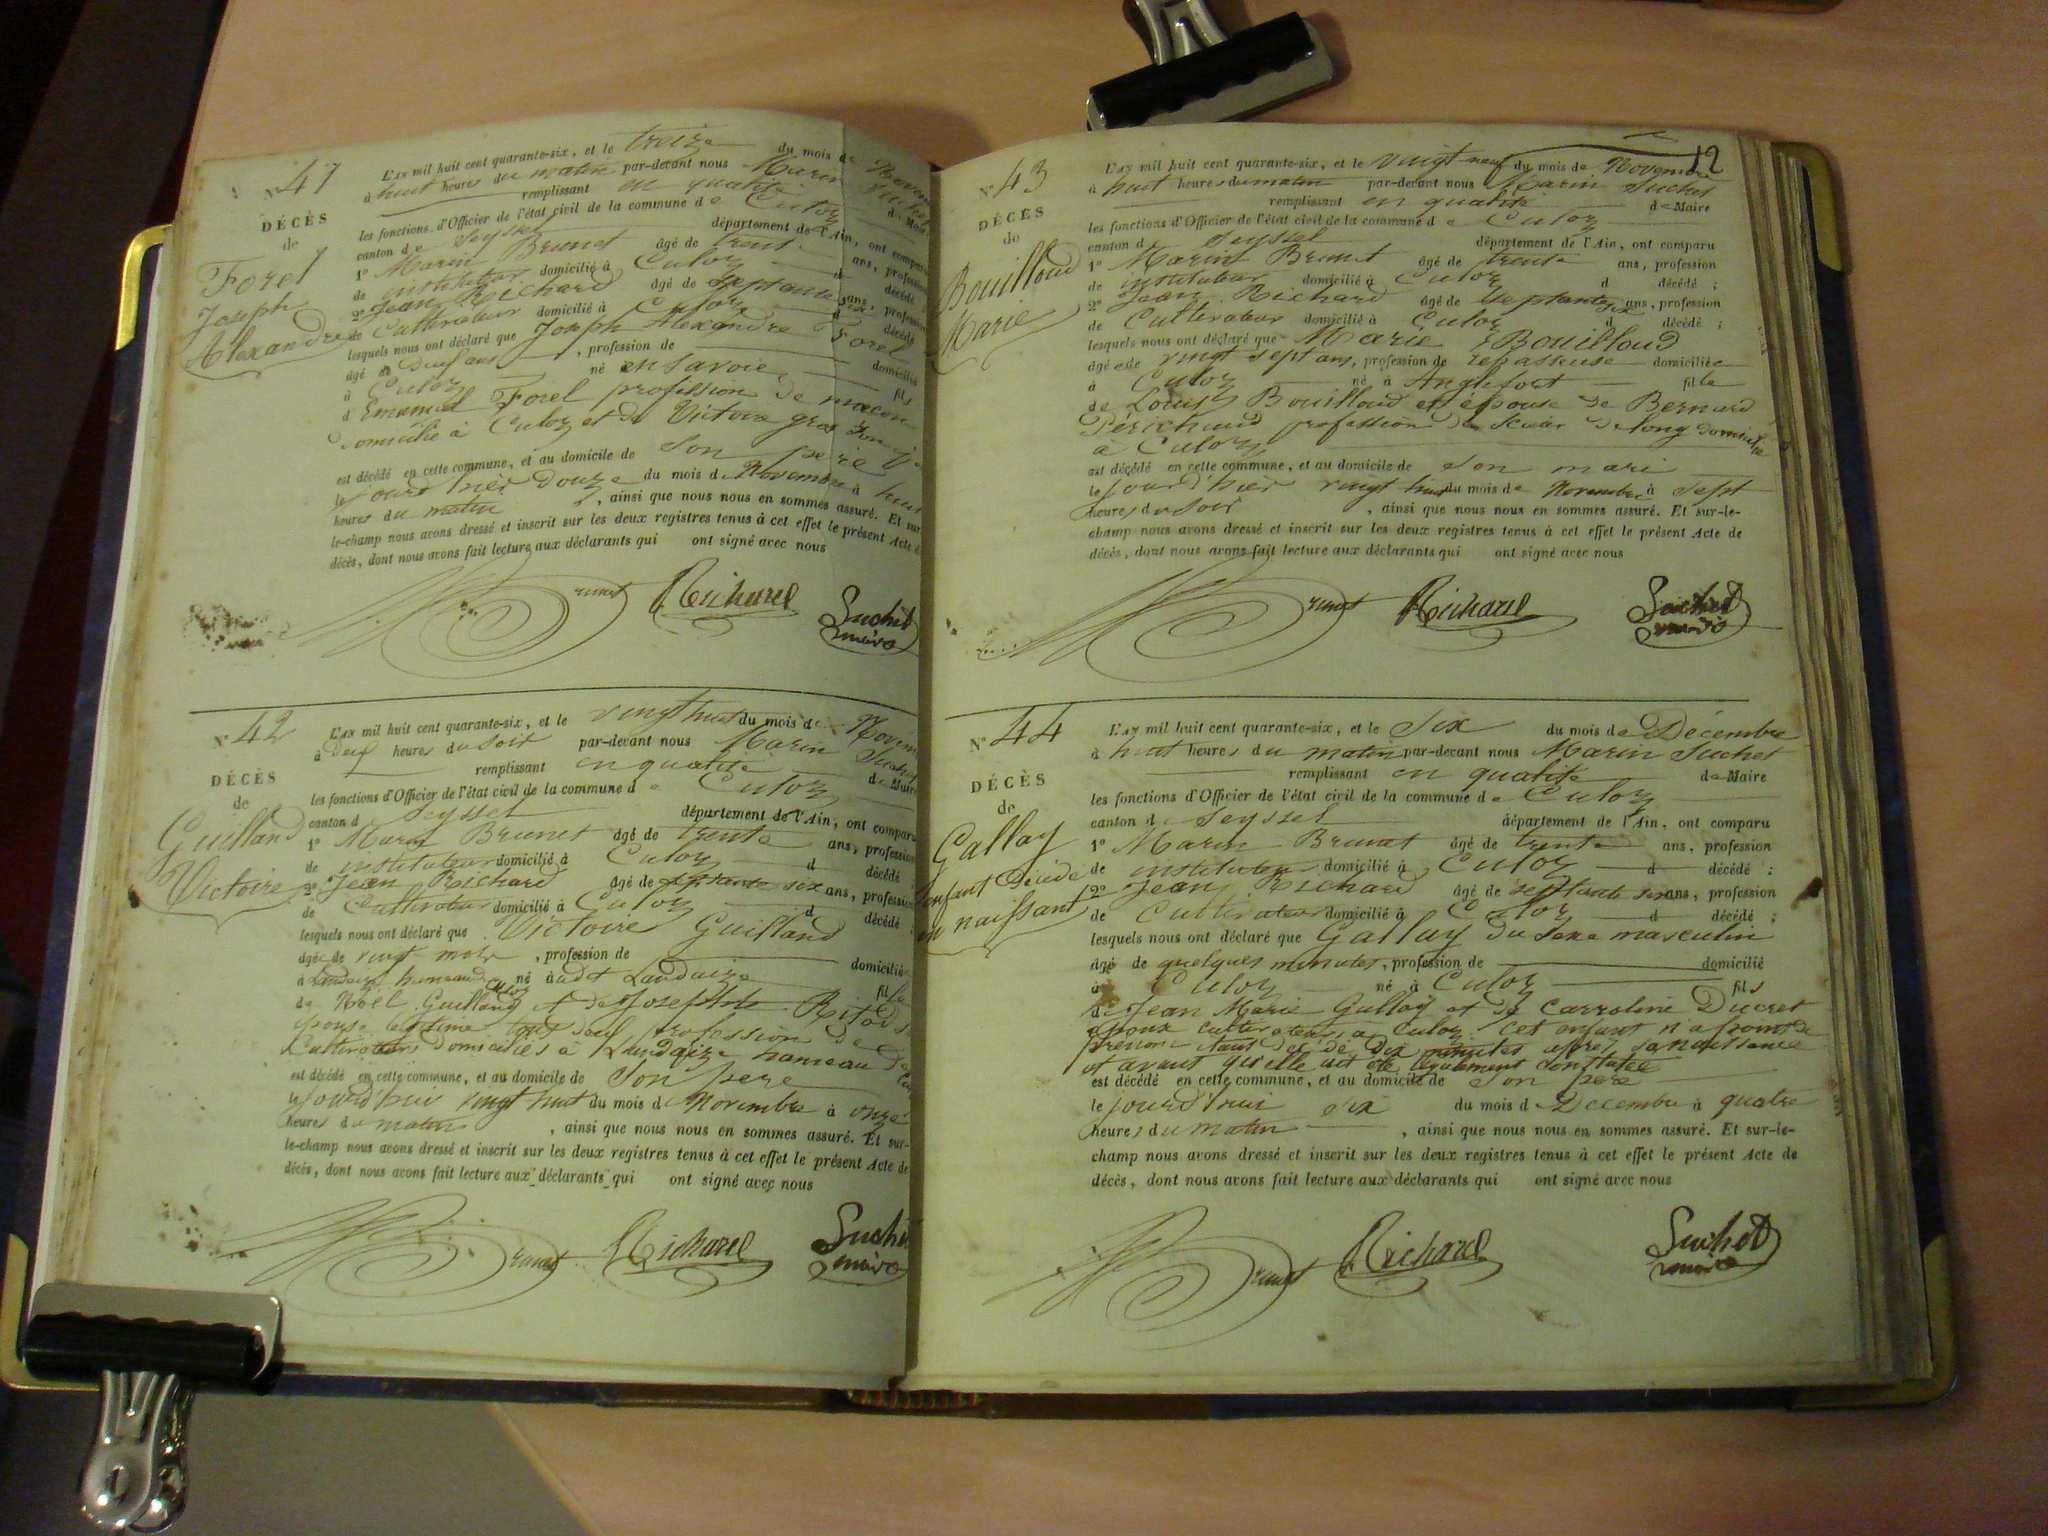 N° 41
DÉCÈS
de
Forel
Joseph
Alexandre
L'AN mil huit cent quarante-six, et le treize du mois de
à huit heures du matin par-devant nous Marin Suchet
remplissant en qualité de Maire
les fonctions d'Officier de l'état civil de la commune de Culoz
canton de Seyssel département de l'Ain, ont comparu
1° Marin Brunet âgé de trente ans, profession
de instituteur domicilié à Culoz d décédé
2° Jean Richard âgé de septante six ans, profession
de Cultivateur domicilié à Culoz d décédé
lesquels nous ont déclaré que Joseph Alexandre Forel
âgé de deux ans, profession de domicilié
à Culoz né en Savoie fils
d'Emanuel Forel profession de maçon
domicilié à Culoz et de Victoire
est décédé en cette commune, et au domicile de son père
le jourd'hier douze du mois de Novembre à huit
heures du matin, ainsi que nous nous en sommes assuré. Et sur-
le-champ nous avons dressé et inscrit sur les deux registres tenus à cet effet le présent Acte de
décès, dont nous avons fait lecture aux déclarants qui ont signé avec nous
Brunet Richard Suchet
maire
N° 42
DÉCÈS
de
Guilland
Victoire
L'AN mil huit cent quarante-six, et le vingt huit du mois de
à deux heures du soir par-devant nous Marin Suchet
remplissant en qualité de Maire
les fonctions d'Officier de l'état civil de la commune de Culoz
canton d Seyssel département de l'Ain, ont comparu
1° Marin Brunet âgé de trente ans, profession
de instituteur domicilié à Culoz d décédé ;
2° Jean Richard âgé de septante six ans, profession
de Cultivateur domicilié à Culoz d décédé ;
lesquels nous ont déclaré que Victoire Guilland
âgée de vingt mois, profession de domicilié
à Landaize hameau de Culoz né à Landaize fille
de Noël Guilland et de Josephte
épouse légitime tous deux profession de
Cultivateurs domiciliés à Landaize hameau de
est décédé en cette commune, et au domicile de son père
le jourd'hui vingt huit du mois d Novembre à onze
heures du matin, ainsi que nous nous en sommes assuré. Et sur-
le-champ nous avons dressé et inscrit sur les deux registres tenus à cet effet le présent Acte de
décès, dont nous avons fait lecture aux déclarants qui ont signé avec nous
Brunet Richard Suchet
maire
12
N° 43
DÉCÈS
de
Bouilloud
Marie
L'AN mil huit cent quarante-six, et le vingt neuf du mois de Novembre
à huit heures du matin par-devant nous Marin Suchet
remplissant en qualité de Maire
les fonctions d'Officier de l'état civil de la commune d Culoz
canton d Seyssel département de l'Ain, ont comparu
1° Marin Brunet âgé de trente ans, profession
de instituteur domicilié à Culoz d décédé ;
2° Jean Richard âgé de septante six ans, profession
de Cultivateur domicilié à Culoz d décédé ;
lesquels nous ont déclaré que Marie Bouilloud
âgée de vingt sept ans, profession de repasseuse domiciliée
à Culoz né à Anglefort fille
de Louis Bouilloud et épouse de Bernard
Périchaud profession de Scieur de long domicilié
à Culoz
est décédé en cette commune, et au domicile de son mari
le jourd'hier vingt huit du mois de Novembre à sept
heures du soir, ainsi que nous nous en sommes assuré. Et sur-le-
champ nous avons dressé et inscrit sur les deux registres tenus à cet effet le présent Acte de
décès, dont nous avons fait lecture aux déclarants qui ont signé avec nous
Brunet Richard Suchet
maire
N° 44
DÉCÈS
de
Gallay
enfant décédé
en naissant
L'AN mil huit cent quarante-six, et le six du mois de Décembre
à huit heures du matin par-devant nous Marin Suchet
remplissant en qualité de Maire
les fonctions d'Officier de l'état civil de la commune de Culoz
canton de Seyssel département de l'Ain, ont comparu
1° Marin Brunet âgé de trente ans, profession
de instituteur domicilié à Culoz d décédé ;
2° Jean Richard âgé de septante six ans, profession
de Cultivateur domicilié à Culoz d décédé ;
lesquels nous ont déclaré que Gallay du sexe masculin
âgé de quelques minutes, profession de domicilié
à Culoz né à Culoz fils
de Jean Marie Gallay et de Carroline Ducret
époux cultivateurs à Culoz cet enfant n'a point de
prénom étant décédé dix minutes après sa naissance
et avant qu'elle ait été légalement constatée
est décédé en cette commune, et au domicile de son père
le jourd'hui six du mois d Décembre à quatre
heures du matin, ainsi que nous nous en sommes assuré. Et sur-le-
champ nous avons dressé et inscrit sur les deux registres tenus à cet effet le présent Acte de
décès, dont nous avons fait lecture aux déclarants qui ont signé avec nous
Brunet Richard Suchet
maire